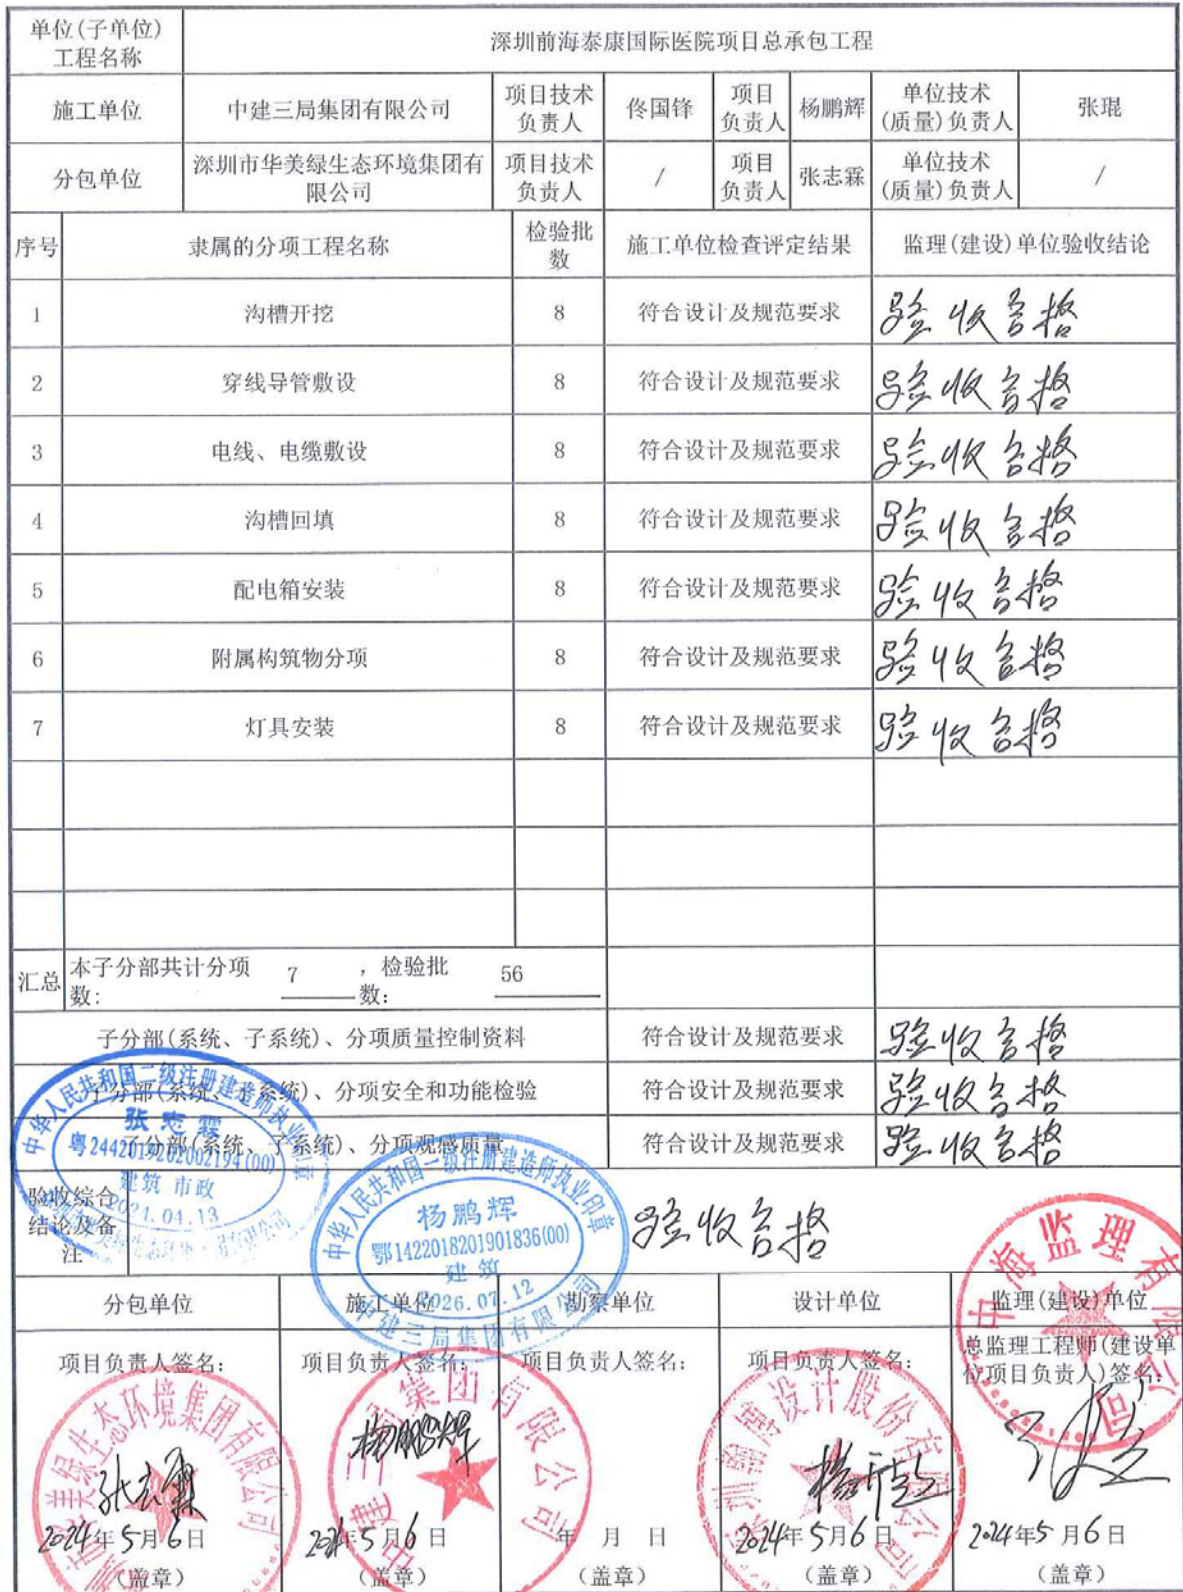 单位(子单位)
工程名称
深圳前海泰康国际医院项目总承包工程
施工单位
中建三局集团有限公司
项目技术
负责人
佟国锋
项目
负责人
杨鹏辉
单位技术
(质量)负责人
张琨
分包单位
深圳市华美绿生态环境集团有
限公司
项目技术
负责人
/
项目
负责人
张志霖
单位技术
(质量)负责人
/
序号
隶属的分项工程名称
检验批
数
施工单位检查评定结果
监理(建设)单位验收结论
1 沟槽开挖 8 符合设计及规范要求 验收合格
2 穿线导管敷设 8 符合设计及规范要求 验收合格
3 电线、电缆敷设 8 符合设计及规范要求 验收合格
4 沟槽回填 8 符合设计及规范要求 验收合格
5 配电箱安装 8 符合设计及规范要求 验收合格
6 附属构筑物分项 8 符合设计及规范要求 验收合格
7 灯具安装 8 符合设计及规范要求 验收合格
汇总
本子分部共计分项
数:
7
,检验批
数:
56
子分部(系统、子系统)、分项质量控制资料 符合设计及规范要求 验收合格
子分部(系统、子系统)、分项安全和功能检验 符合设计及规范要求 验收合格
子分部(系统、子系统)、分项观感质量 符合设计及规范要求 验收合格
中华人民共和国二级注册建造师执业印章
张志霖
粤2442019202002194(00)
建筑 市政
04.13
验收综合
结论及备
注
验收合格
中华人民共和国一级注册建造师执业印章
杨鹏辉
鄂1422018201901836(00)
建筑
2026.07.12
中建三局集团有限公司
中海监理有限公司
分包单位
施工单位
勘察单位
设计单位
监理(建设)单位
项目负责人签名:
项目负责人签名:
项目负责人签名:
项目负责人签名:
总监理工程师(建设单
位项目负责人)签名:
美绿生态环境集团有限公司
张志霖
2024年5月6日
(盖章)
建三局集团有限公司
杨鹏辉
2024年5月6日
(盖章)
年 月 日
(盖章)
设计股份有限公司
2024年5月6日
(盖章)
2024年5月6日
(盖章)